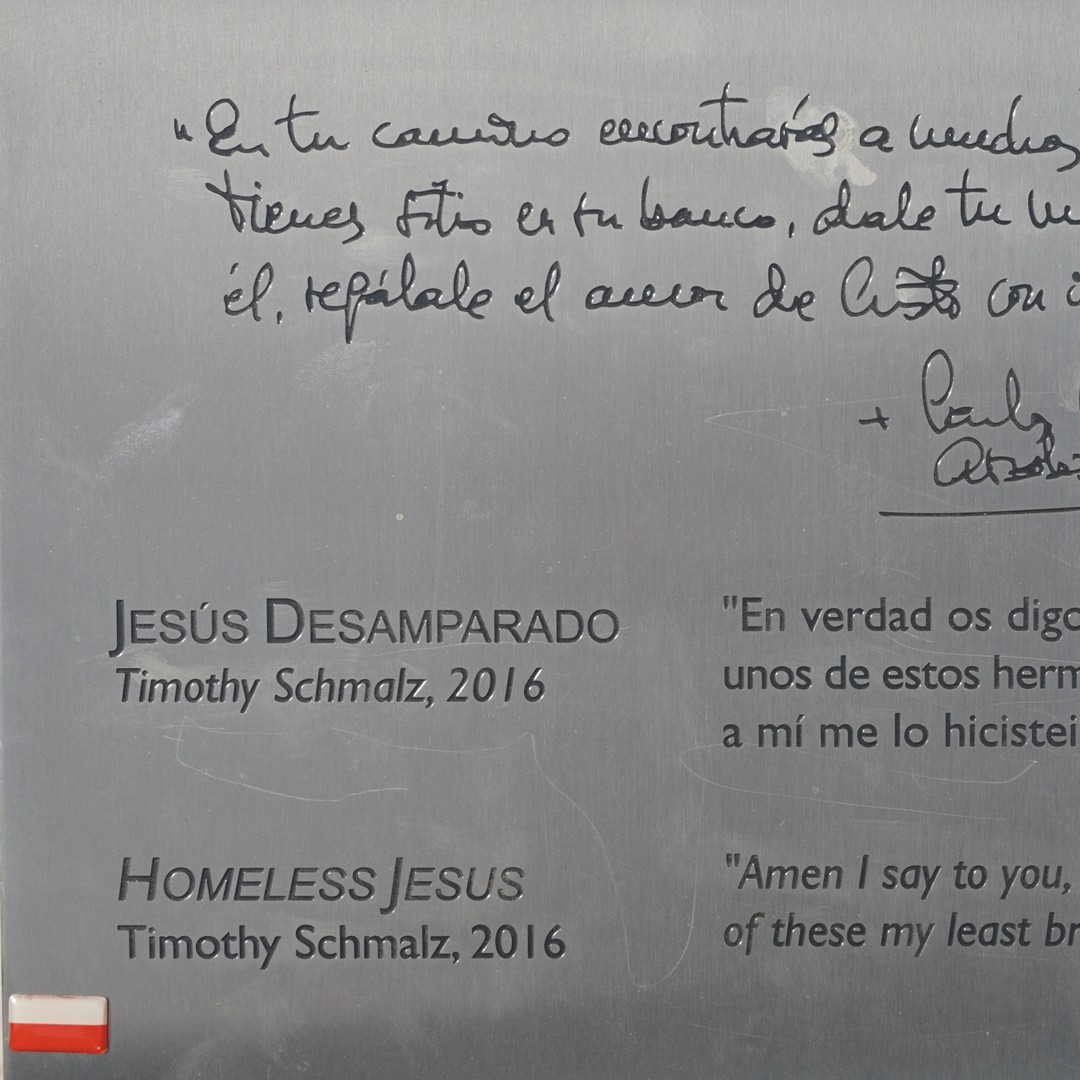 "En tu camino encontrarás a muchos
tienes sitio en tu banco, dale tu
él, regálale el amor de Cristo con
+ Carlos
JESÚS DESAMPARADO
Timothy Schmalz, 2016
"En verdad os digo
unos de estos herm
a mí me lo hicistei
HOMELESS JESUS
Timothy Schmalz, 2016
"Amen I say to you,
of these my least br